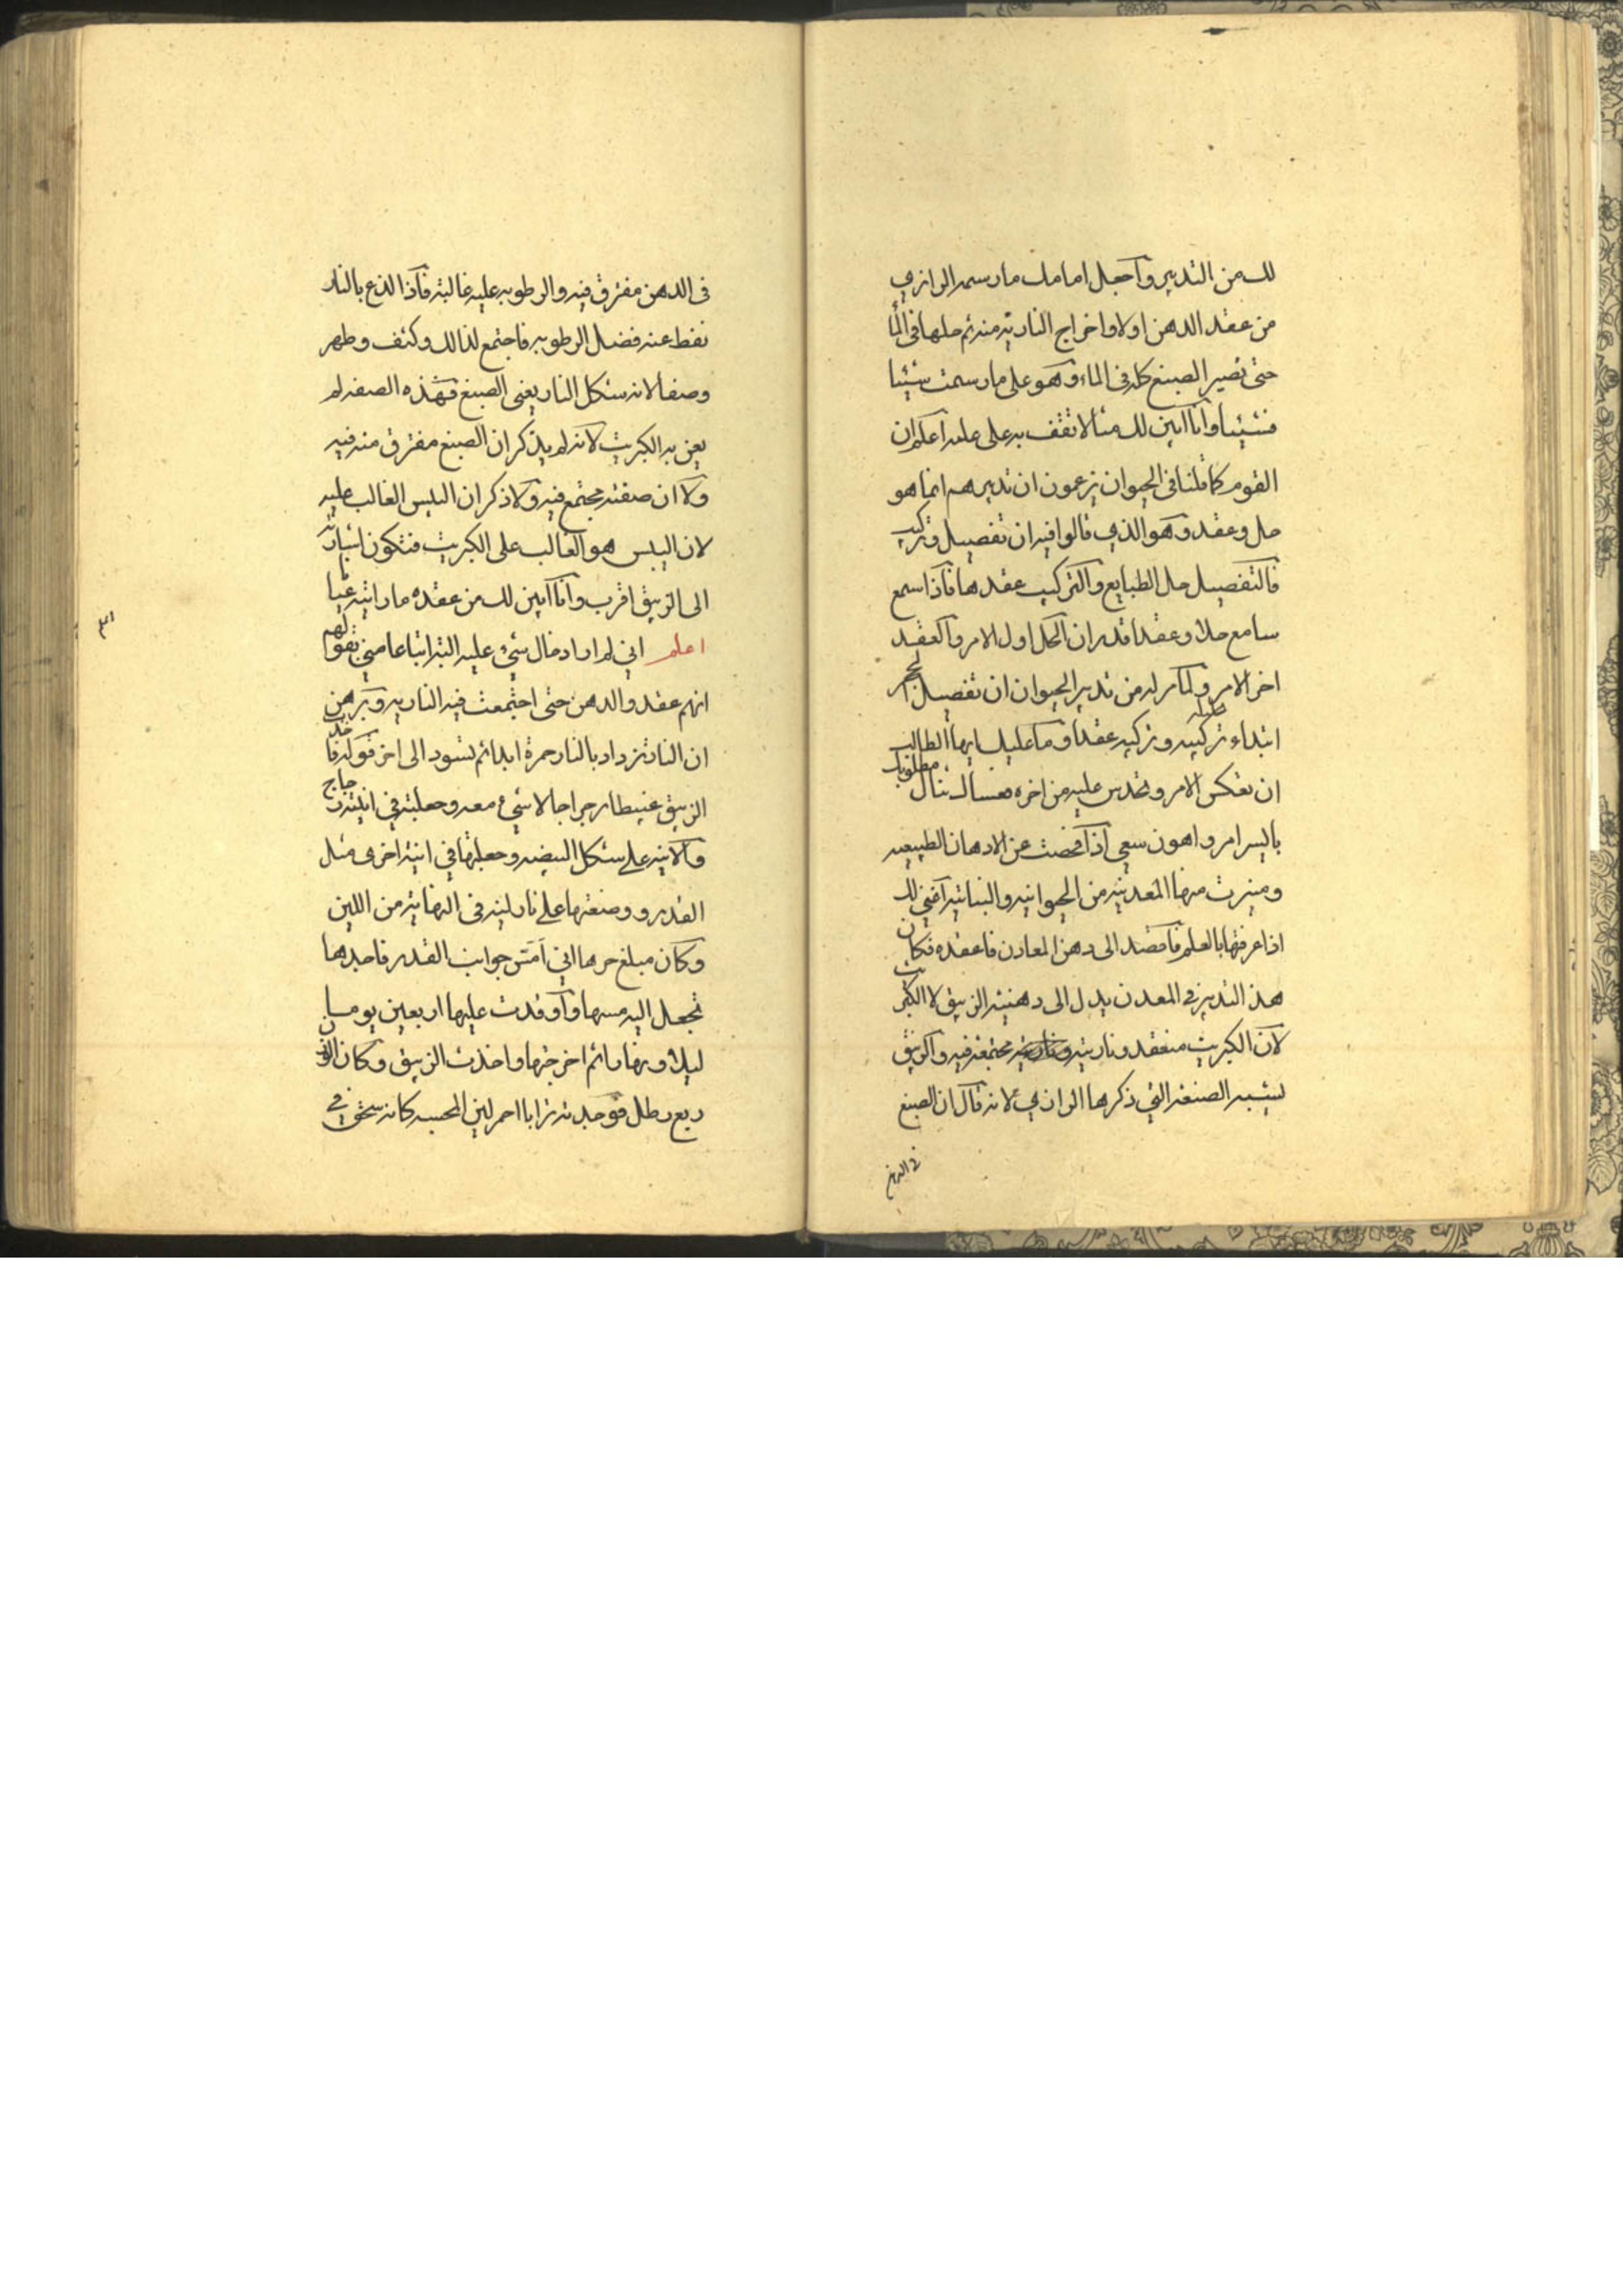 لك من التدبير واجعل امامك مارسمه الرازي
من عقد الدهن اولا واخراج النارية منه ثم حلها فى الما
حتى تصير الصبغ كله فى الماء وهو على مارسمت شيئا
فشيئا وانا ابين لك مثالا تقف به على علمه اعلم ان
القوم كما قلنا فى الحيوان يزعمون ان تدبيرهم انما هو
حل وعقد وهو الذي قالوا فيه ان تفصيل وتركيب
فالتفصيل حل الطبايع والتركيب عقدها فاذا سمع
سامع حلا وعقدا قدر ان الحل اول الامر والعقد
اخر الامر ولما مر له من تدبير الحيوان ان تفصيل الحجر
ابتداء تركيبه وتركيبه عقدا وما عليك ايها الطالب
ان تعكس الامر وتحدس عليه من اخره تنال مطلوبك
بايسر امر واهون سعي اذا فحصت عن الادهان الطبيعيه
وميزت منها المعدنيه من الحيوانيه والنباتيه
اذا عرفتها بالعلم فاقصد الى دهن المعادن فاعقده فكان
هذ التدبير في المعدن يدل الى دهنيه الزيبق لا الكبريت
لان الكبريت منعقد وناريته مجتمعه فيه والزيبق
يشبه الصنعه التي ذكرها الرازي لانه قال ان الصبغ
في الدهن
فى الدهن مفترق فيه والرطوبه عليه غالبة فاذا لذع بالنار
نفط عنه فضل الرطوبه فاجتمع لذالك وكثف وظهر
وصفا لانه شكل النار يعني الصبغ فهذه الصفه لم
يعن به الكبريت لانه لم يذكر ان الصبغ مفترق منه فيه
ولا ان صفته مجتمع فيه ولا ذكر ان اليبس الغالب عليه
لان اليبس هو الغالب على الكبريت فتكون اشارته
الى الزيبق اقرب وانا ابين لك من عقده ما رايته عيا
اعلم اني لم ار ادخال شيء عليه البتة اتباعا مني لقولهم
انهم عقدو الدهن حتى اجتمعت فيه الناريه وبرهن
ان النار تزداد بالنار حمرة ابدا ثم تسود الى اخر قوله فاخذت
الزيبق عبيطا رجراجا لا شيء معه وجعلته في انية زجاج
والانيه على شكل البيضه وجعلتها في انية اخرى مثل
القدر ووضعتها على نار لينه فى النهاية من اللين
وكان مبلغ حرها اني امس جوانب القدر فاجدها
تجعل اليه مسها واوقدت عليها اربعين يوما
ليلا ونهارا ثم اخرجتها واخذت الزيبق وكان الوزن
ربع رطل فوجدته ترابا احمر لين المجسه كانه سحق في
٣١